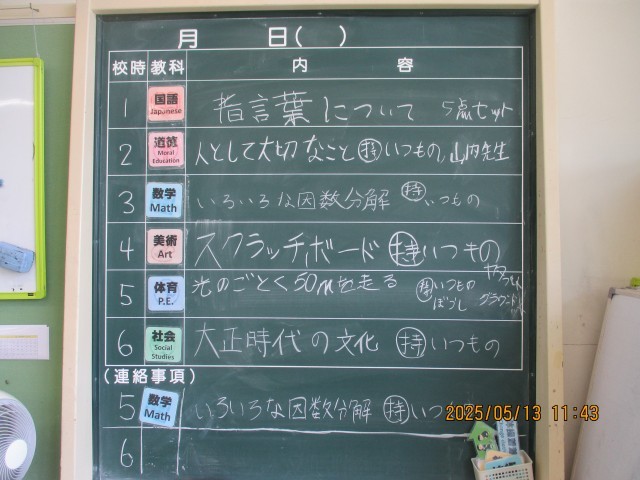 月 日( )
校時 教科 内 容
1 国語 Japanese 指言葉について 5点セット
2 道徳 Moral Education 人として大切なこと 持 いつもの 山内先生
3 数学 Math いろいろな因数分解 持 いつもの
4 美術 Art スクラッチボード 持 いつもの
5 体育 P.E. 光のごとく50mを走る 持 いつもの ぼうし グラウンド
6 社会 Social Studies 大正時代の文化 持 いつもの
(連絡事項)
5 数学 Math いろいろな因数分解 持 いつ
6
2025/05/13 11:43